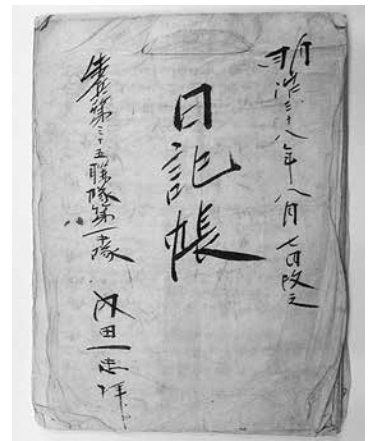 明治三十八年八月七日改之
日記帳
歩兵第三十五聯隊第一中隊 内田一忠